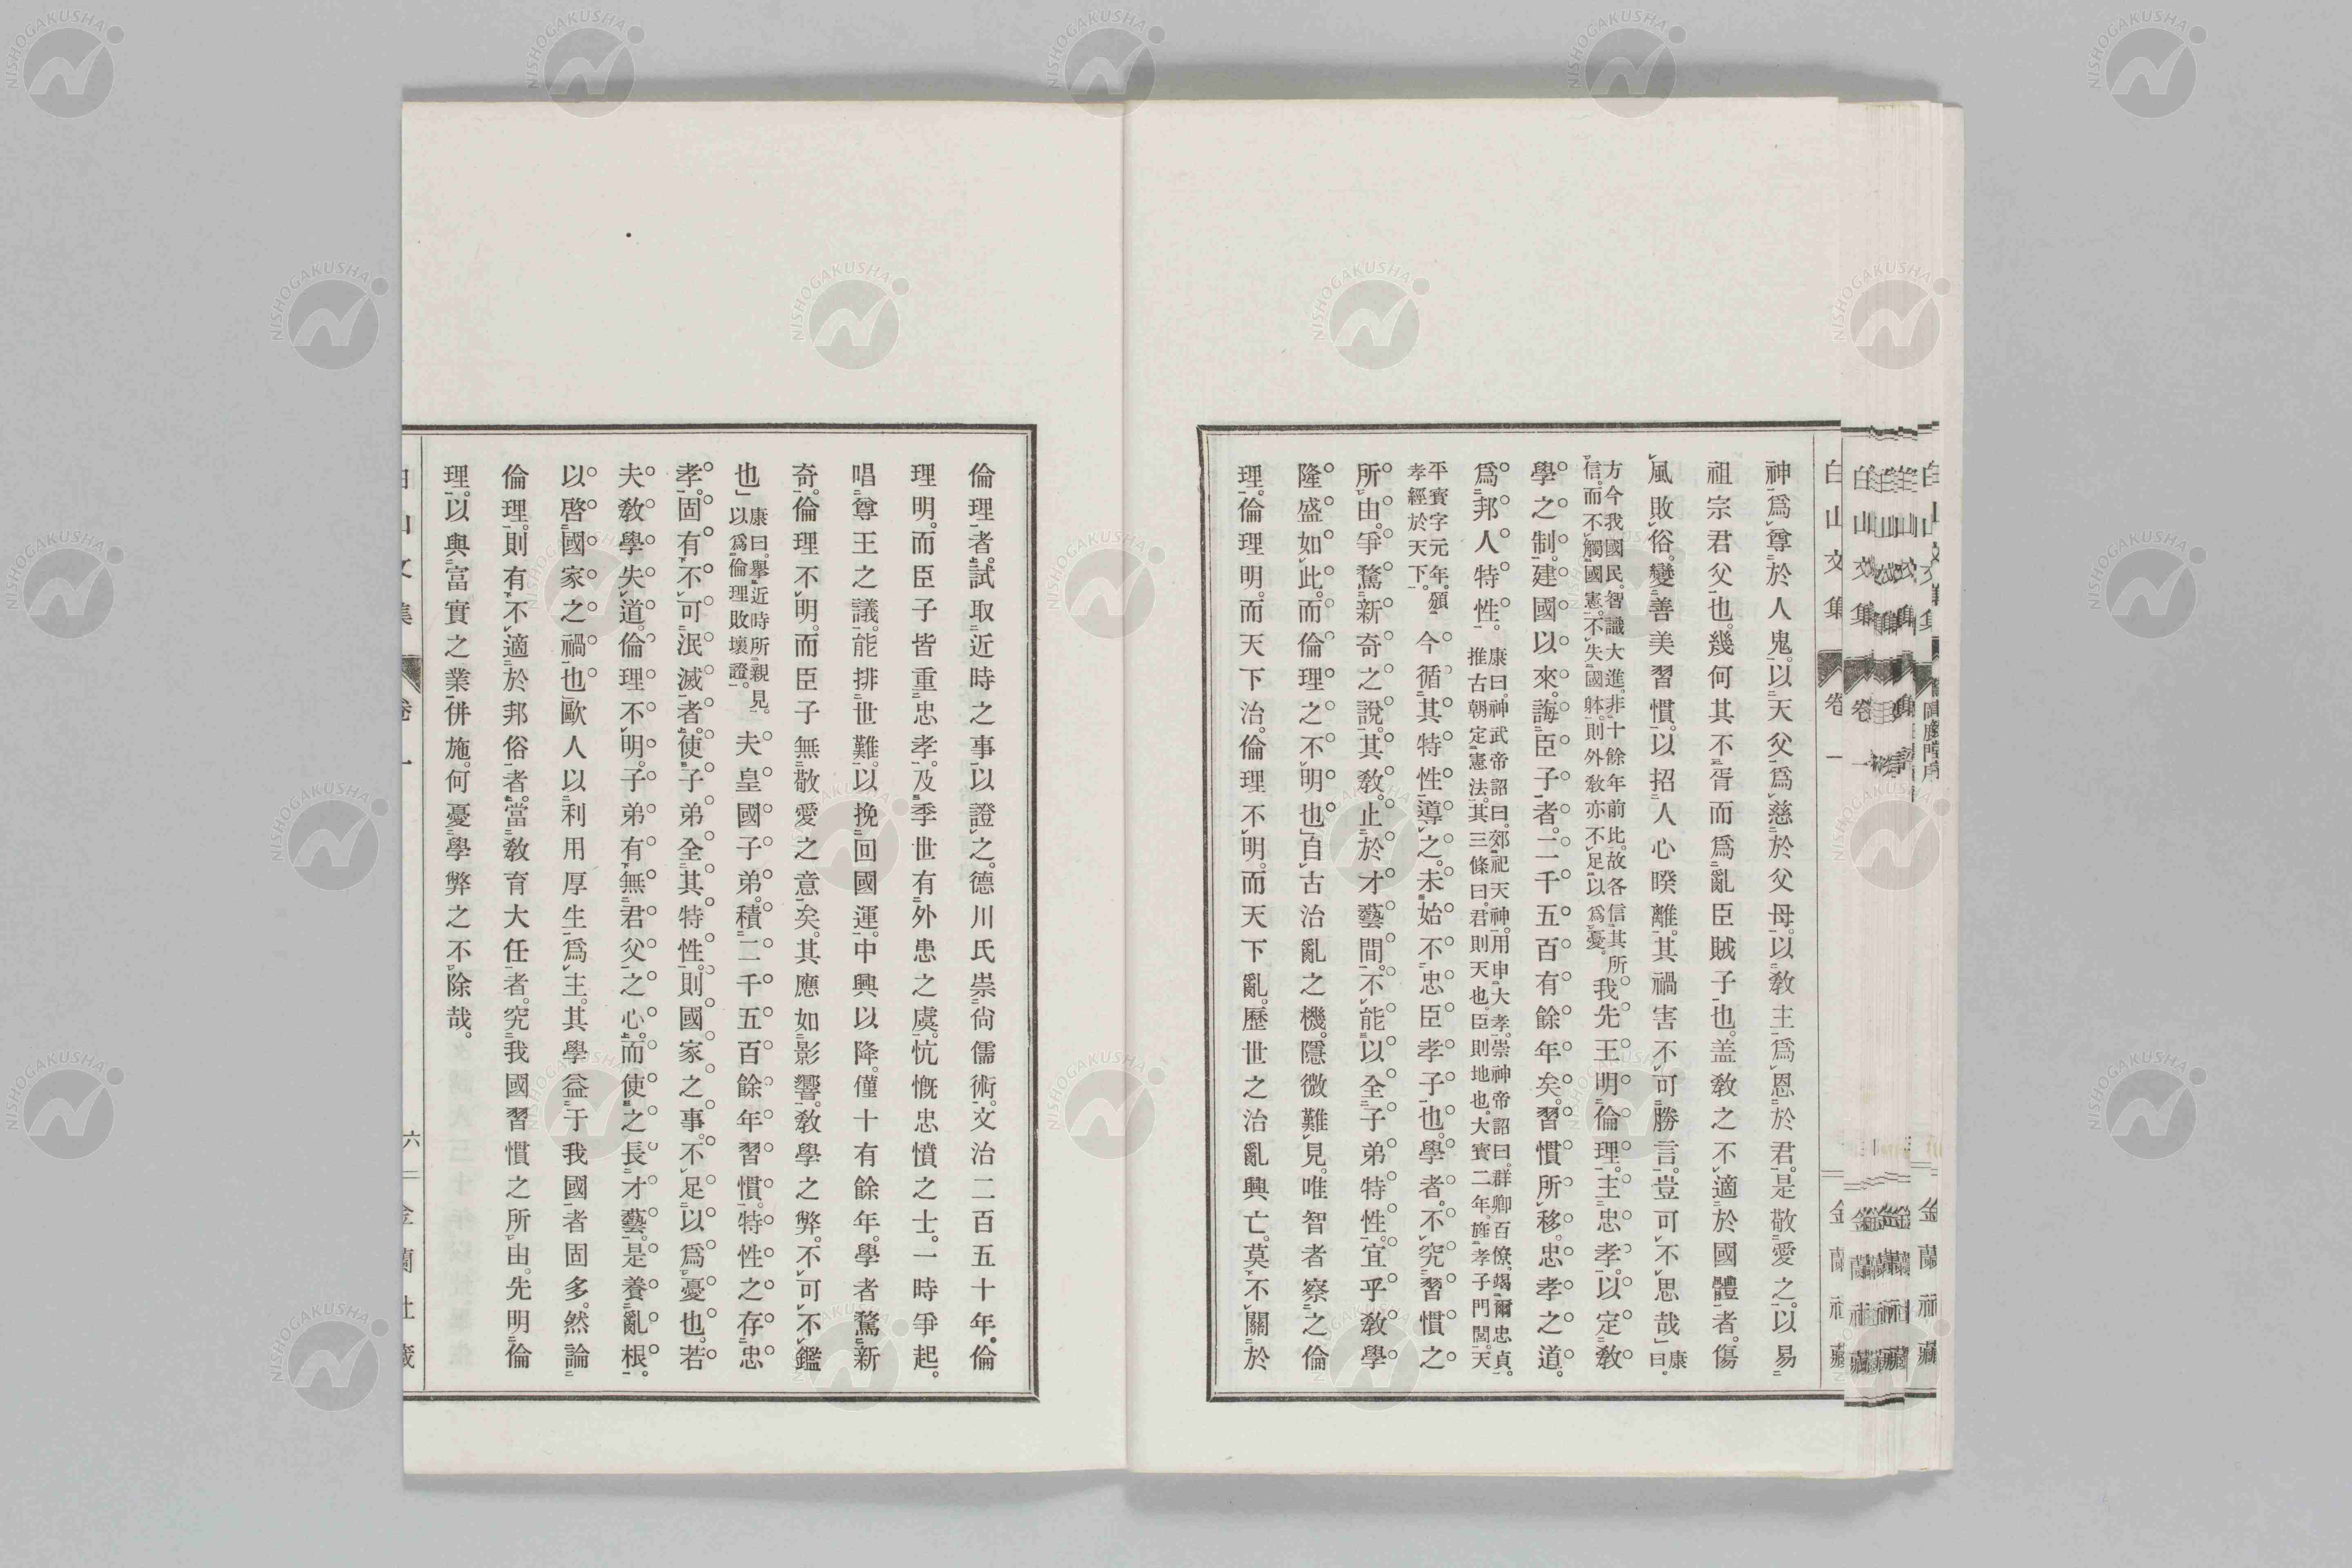 神爲尊於人鬼。以天父爲慈於父母。以敎主爲恩於君。是敬愛之。以易
祖宗君父也。幾何其不胥而爲亂臣賊子也。盖敎之不適於國體者。傷
風敗俗。變善美習慣。以招人心睽離。其禍害不可勝言。豈可不思哉」康曰。
方今我國民。智識大進。非十餘年前比。故各信其所
信。而不觸國憲。不失國躰。則外敎亦不足以爲憂。
我先王明倫理。主忠孝。以定敎
學之制。建國以來。誨臣子者。二千五百有餘年矣。習慣所移。忠孝之道。
爲邦人特性。
康曰。神武帝詔曰。郊祀天神。用申大孝。崇神帝詔曰。群卿百僚。竭爾忠貞。
推古朝定憲法。其三條曰。君則天也。臣則地也。大寶二年。旌孝子門閭。天
平寶字元年。頒
孝經於天下。
今循其特性導之。未始不忠臣孝子也。學者。不究習慣之
所由。爭騖新奇之說。其敎。止於才藝間。不能以全子弟特性。宜乎敎學
隆盛如此。而倫理之不明也」自古治亂之機。隱微難見。唯智者察之倫
理。倫理明。而天下治。倫理不明。而天下亂。歷世之治亂興亡。莫不關於
白山文集
卷一
金蘭社藏
倫理者。試取近時之事。以證之。德川氏崇尙儒術。文治二百五十年。倫
理明。而臣子皆重忠孝。及季世有外患之虞。忼慨忠憤之士。一時爭起。
唱尊王之議。能排世難。以挽回國運。中興以降。僅十有餘年。學者騖新
奇。倫理不明。而臣子無敬愛之意矣。其應如影響。敎學之弊。不可不鑑
也」
康曰。擧近時所親見。
以爲倫理敗壞證。
夫皇國子弟。積二千五百餘年習慣。特性之存忠
孝。固有不可泯滅者。使子弟全其特性。則國家之事。不足以爲憂也。若
夫敎學失道。倫理不明。子弟有無君父之心。而使之長才藝。是養亂根。
以啓國家之禍也。歐人以利用厚生爲主。其學益于我國者固多。然論
倫理。則有不適於邦俗者。當敎育大任者。究我國習慣之所由。先明倫
理。以與富實之業倂施。何憂學弊之不除哉。
白山文集
卷一
六
金蘭社藏